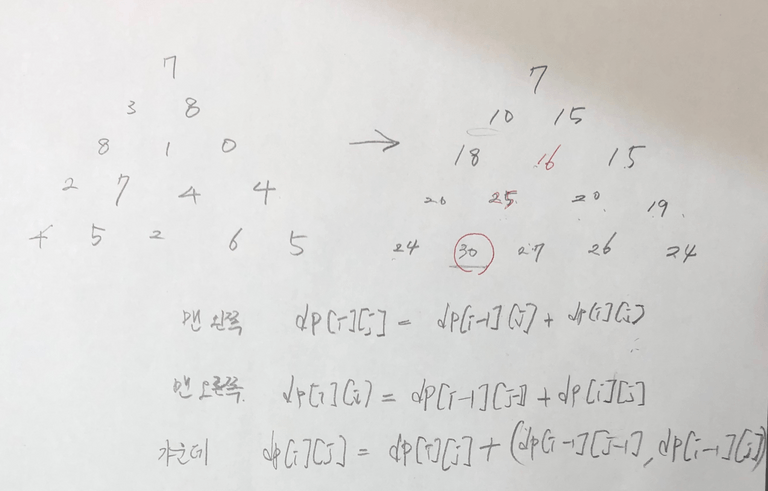 7
3 8
8 1 0
2 7 4 4
4 5 2 6 5
→
7
10 15
18 16 15
20 25 20 19
24 30 27 26 24
맨 왼쪽 dp[i][j] = dp[i-1][j] + dp[i][j]
맨 오른쪽 dp[i][j] = dp[i-1][j-1] + dp[i][j]
가운데 dp[i][j] = dp[i][j] + (dp[i-1][j-1], dp[i-1][j])